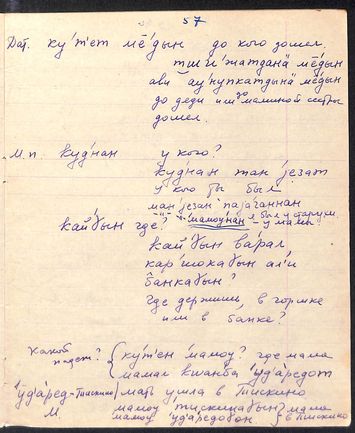 57
Дат. ку́т'ет мё́дын до кого дошел.
тши́ жатданӓ мё́дын
ави ау́нупкатдынӓ мёдын
до деди или до маминой сестры
дошел.
М.п. куд'нан у кого?
куд'нан тан језат
у кого ты был
ман језан параганнан
я был у старухи
кай'ӷын где? мамоу́нан - у мамы
кай'ӷын ва́рал
кар'шокаӷын ал'и
банкаӷын?
где держишь, в горшке
или в банке?
какой падеж? ку́т'ен мамоу? где мама
мамал кванба 'уд'аредот
'уд'аред-Тискино мать ушла в Тискино
М. мамоу тискинаӷын мама
мамоу 'уд'аредоӷон в Тискино